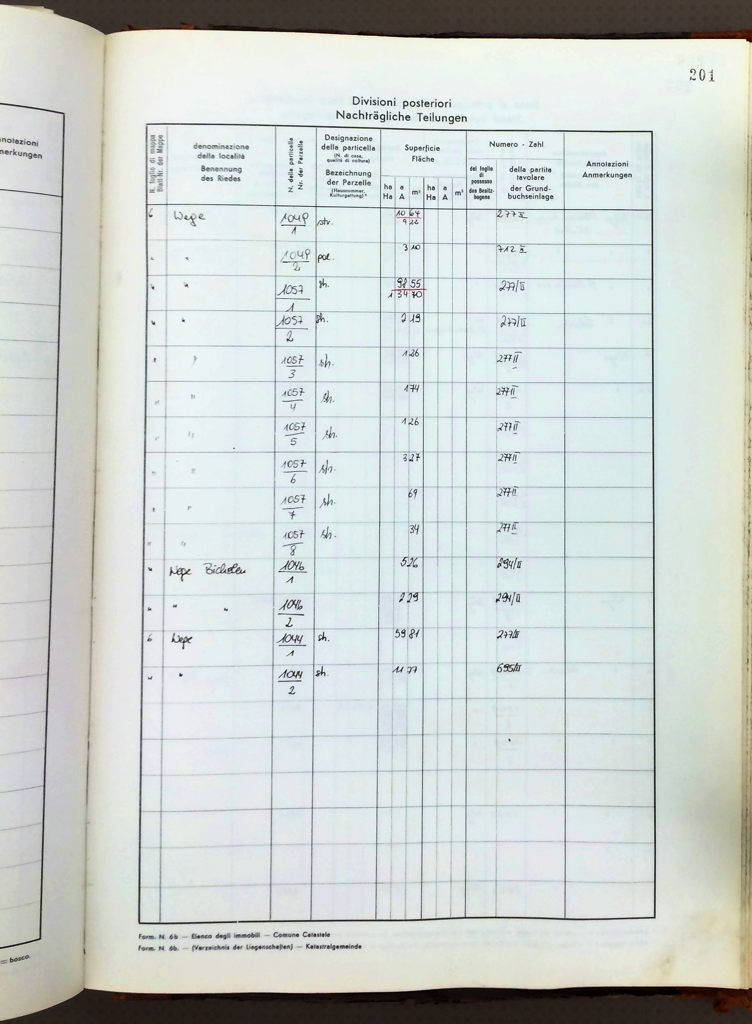 notazioni
merkungen
= bosco.
201
Divisioni posteriori
Nachträgliche Teilungen
N. foglio di mappa
Blatt-Nr. der Mappe
denominazione
della località
Benennung
des Riedes
N. della particella
Nr. der Parzelle
Designazione
della particella
(N. di casa,
qualità di coltura)
Bezeichnung
der Parzelle
(Hausnummer,
Kulturgattung)
Superficie
Fläche
ha a m² ha a m²
Ha A Ha A
Numero - Zahl
del foglio
di
possesso
des Besitz-
bogens
della partita
tavolare
der Grund-
buchseinlage
Annotazioni
Anmerkungen
6 Wege 1 str. 10 64 277 II
" " 2 3 10 712 II
" " 1057/1 sh. 55 277/II
1 34 70
" " 1057/2 sh. 2 19 277/II
" " 1057/3 sh. 1 26 277 II
" " 1057/4 sh. 1 74 277 II
" " 1057/5 sh. 1 26 277 II
" " 1057/6 sh. 3 27 277 II
" " 1057/7 sh. 69 277 II
" " 1057/8 sh. 34 277 II
" Wege 1046/1 5 26 294/II
" " " 1046/2 2 29 294/II
6 Wege 1044/1 sh. 59 81 277/II
" " 1044/2 sh. 11 77 695/II
Form. N. 6b — Elenco degli immobili — Comune Catastale
Form. N. 6b. — (Verzeichnis der Liegenschaften) — Katastralgemeinde